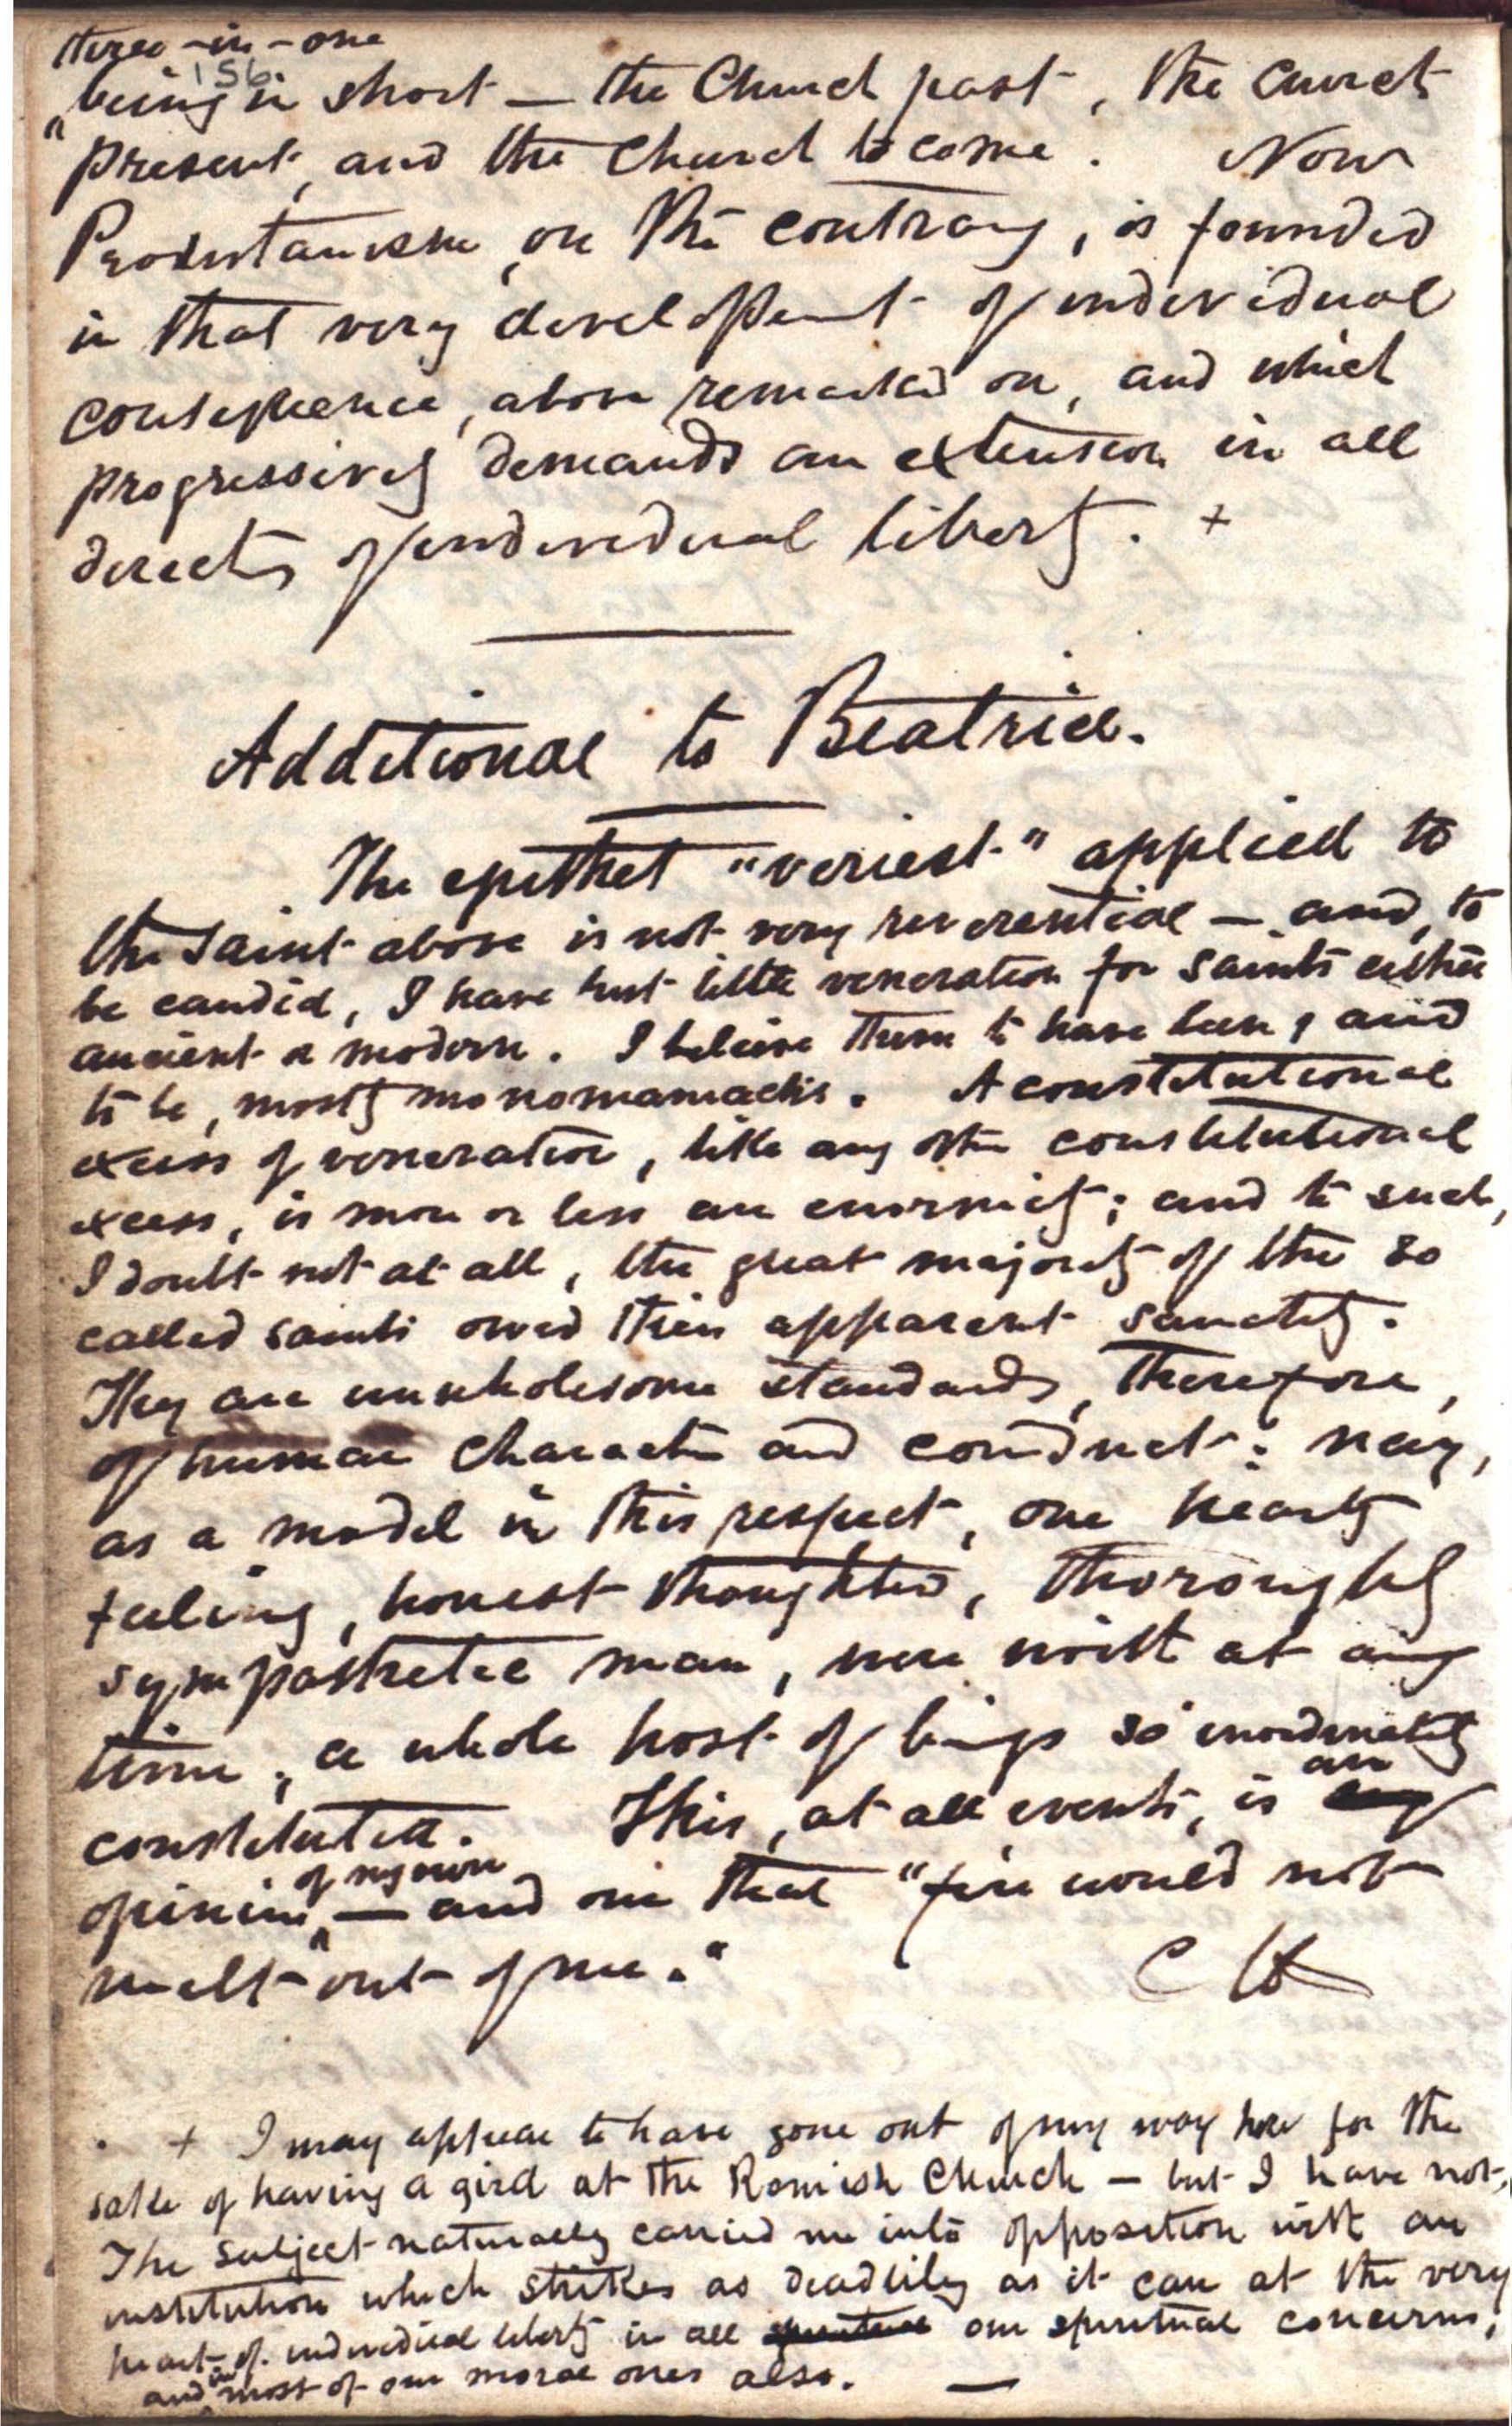 three-in-one
156
being in short — the Church past, the Church
present, and the Church to come. Now
Protestantism, on the contrary, is founded
in that very development of individual
consequence, above remarked on, and which
progressively demands an extension in all
directions of individual liberty. +
Additional to Beatrice.
The epithet "veriest" applied to
the Saint above is not very reverential — and, to
be candid, I have but little veneration for saints either
ancient or modern. I believe them to have been, and
to be, mostly monomaniacs. A constitutional
excess of veneration, like any other constitutional
excess, is more or less an enormity; and to such,
I doubt not at all, the great majority of the so
called saints owed their apparent sanctity.
They are unwholesome standards, therefore,
of human character and conduct: nay,
as a model in this respect, one hearty
feeling, honest thoughted, thoroughly
sympathetic man, were worth at any
time, a whole host of beings so inordinately
constituted. This, at all events, is an
opinion of my own — and one that "fire would not
melt out of me."
CH
+ I may appear to have gone out of my way here for the
sake of having a gird at the Romish Church — but I have not.
The subject naturally carried me into opposition with an
institution which strikes as deadlily as it can at the very
heart of individual liberty in all spiritual our spiritual concerns,
and in most of our moral ones also. —